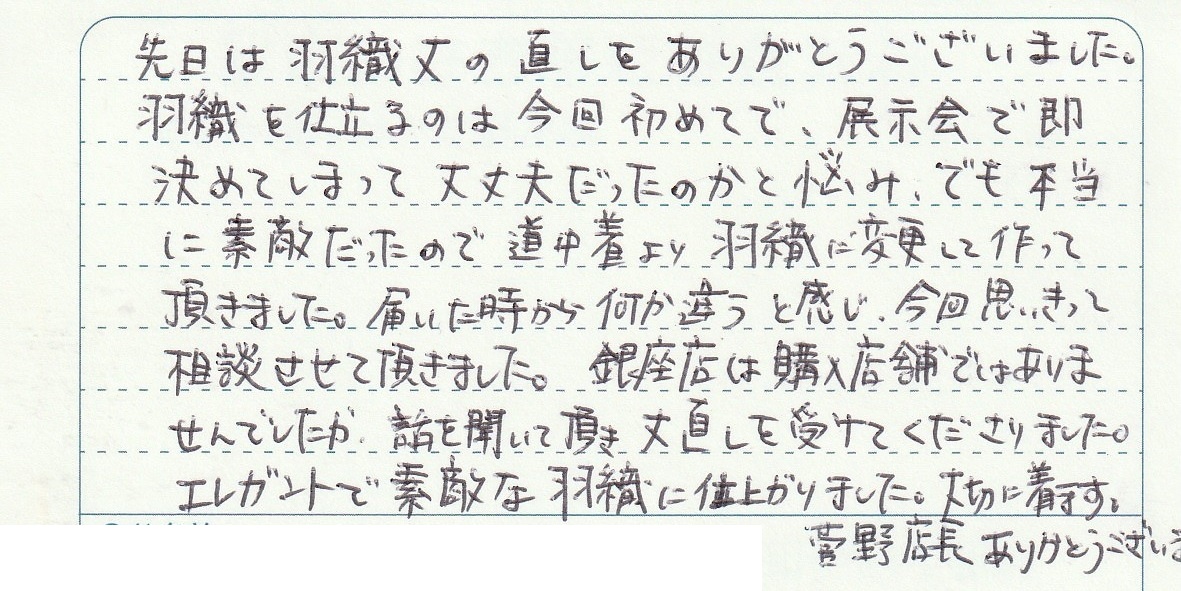 先日は羽織丈の直しをありがとうございました。
羽織を仕立るのは今回初めてで、展示会で即
決めてしまって大丈夫だったのかと悩み、でも本当
に素敵だったので道中着より羽織に変更して作って
頂きました。届いた時から何か違うと感じ、今回思いきって
相談させて頂きました。銀座店は購入店舗ではありま
せんでしたが、話を聞いて頂き丈直しを受けてくださりました。
エレガントで素敵な羽織に仕上がりました。大切に着ます。
菅野店長ありがとうございま